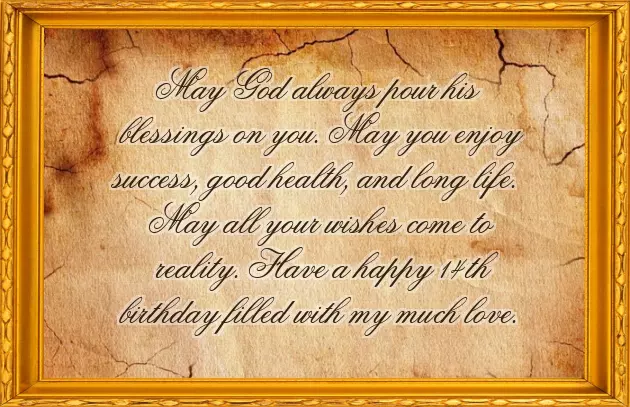 May God always pour his
blessings on you. May you enjoy
success, good health, and long life.
May all your wishes come to
reality. Have a happy 14th
birthday filled with my much love.